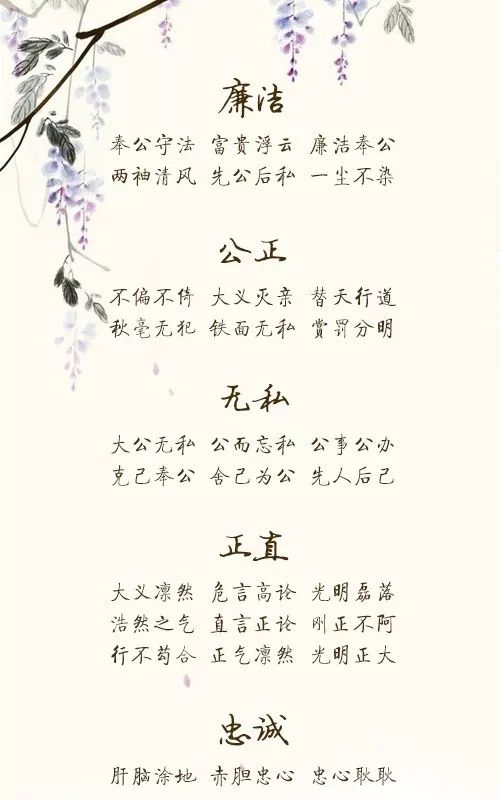 廉洁
奉公守法 富贵浮云 廉洁奉公
两袖清风 先公后私 一尘不染
公正
不偏不倚 大义灭亲 替天行道
秋毫无犯 铁面无私 赏罚分明
无私
大公无私 公而忘私 公事公办
克己奉公 舍己为公 先人后己
正直
大义凛然 危言高论 光明磊落
浩然之气 直言正论 刚正不阿
行不苟合 正气凛然 光明正大
忠诚
肝脑涂地 赤胆忠心 忠心耿耿